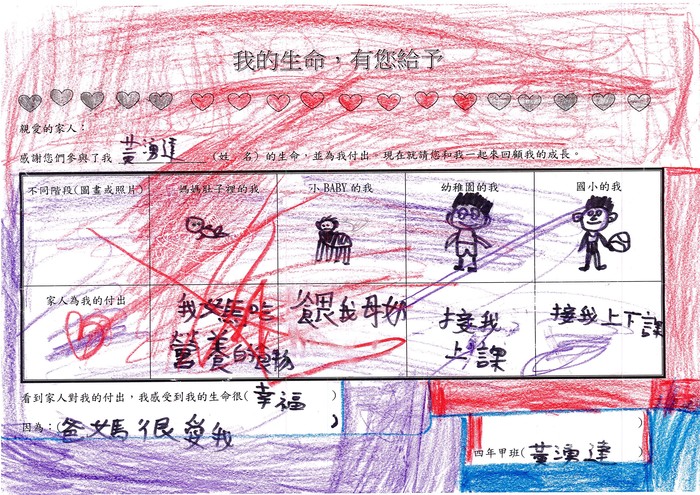 我的生命，有您給予
親愛的家人：
感謝您們參與了我 黃湧達 （姓 名）的生命，並為我付出。現在就請您和我一起來回顧我的成長。
不同階段(圖畫或照片) 媽媽肚子裡的我 小 BABY 的我 幼稚園的我 國小的我
家人為我的付出 我媽吃 營養的食物 餵我母奶 接我 上課 接我上下課
看到家人對我的付出，我感受到我的生命很( 幸福 )
因為：(爸媽很愛我 )
四年甲班( 黃湧達 )